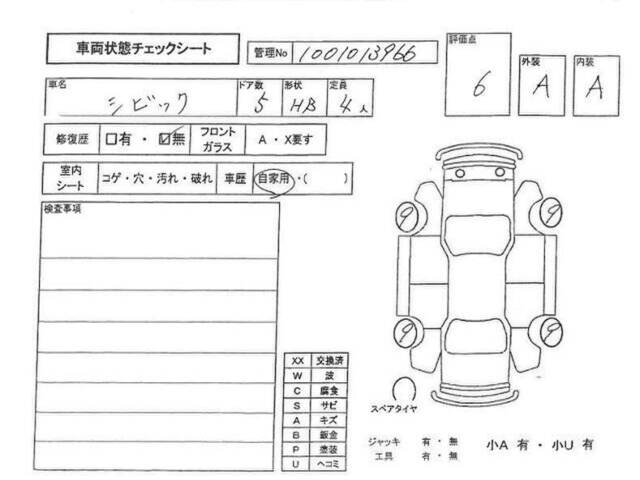 車両状態チェックシート
管理No 1001013966
評価点 6
外装 A
内装 A
車名 シビック
ドア数 5
形状 HB
定員 4人
修復歴 □有・☑無
フロントガラス A・X要す
室内シート コゲ・穴・汚れ・破れ
車歴 自家用・( )
検査事項
9
9
9
9
XX 交換済
W 波
C 腐食
S サビ
A キズ
B 鈑金
P 塗装
U ヘコミ
スペアタイヤ
ジャッキ 有・無
工具 有・無
小A 有・小U 有